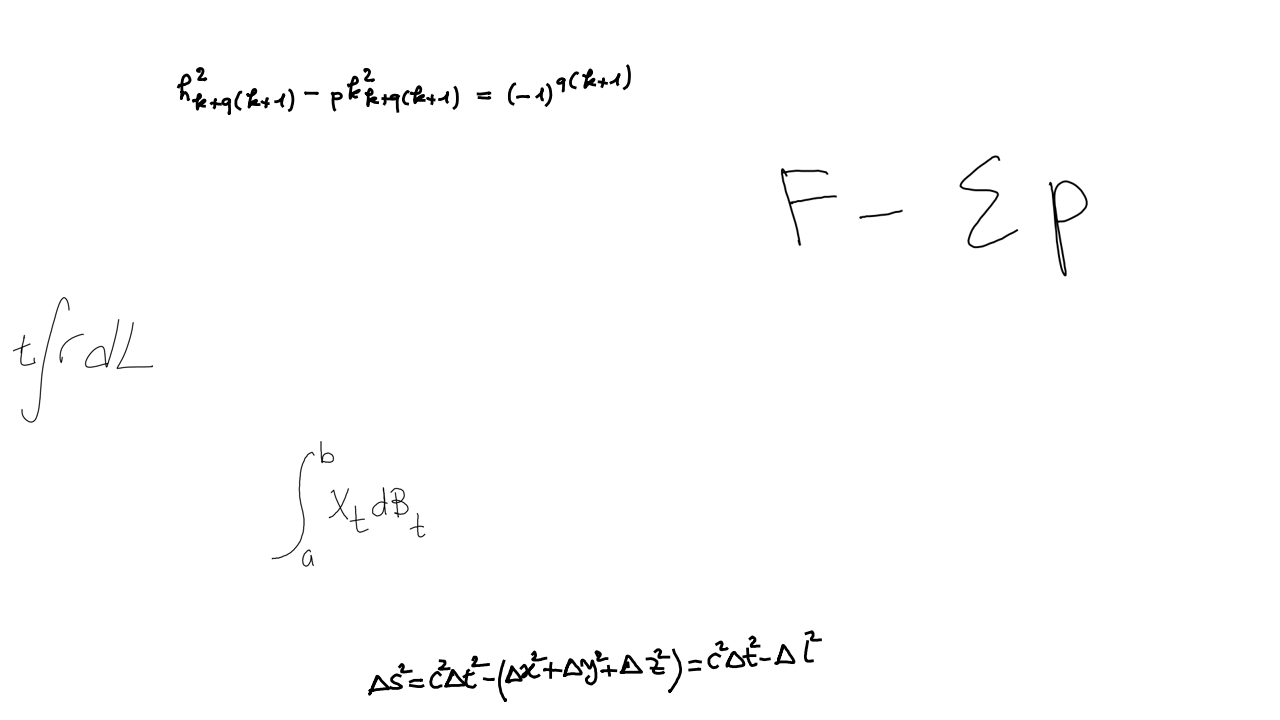 $h^2_{k+q(k+1)} - pk^2_{k+q(k+1)} = (-1)^{q(k+1)}$
$F - \Sigma p$
$t \int r dL$
$\int_a^b X_t dB_t$
$\Delta s^2 = c^2 \Delta t^2 - (\Delta x^2 + \Delta y^2 + \Delta z^2) = c^2 \Delta t^2 - \Delta l^2$